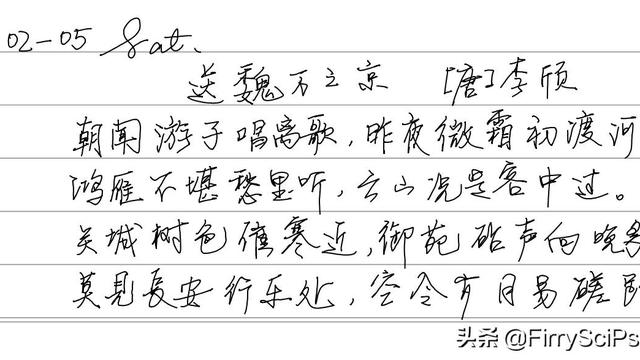 02-05 Sat.
送魏万之京 [唐]李颀
朝闻游子唱离歌,昨夜微霜初渡河
鸿雁不堪愁里听,云山况是客中过。
关城树色催寒近,御苑砧声向晚多
莫见長安行乐处,空令岁月易磋
头条 @FirrySciPs